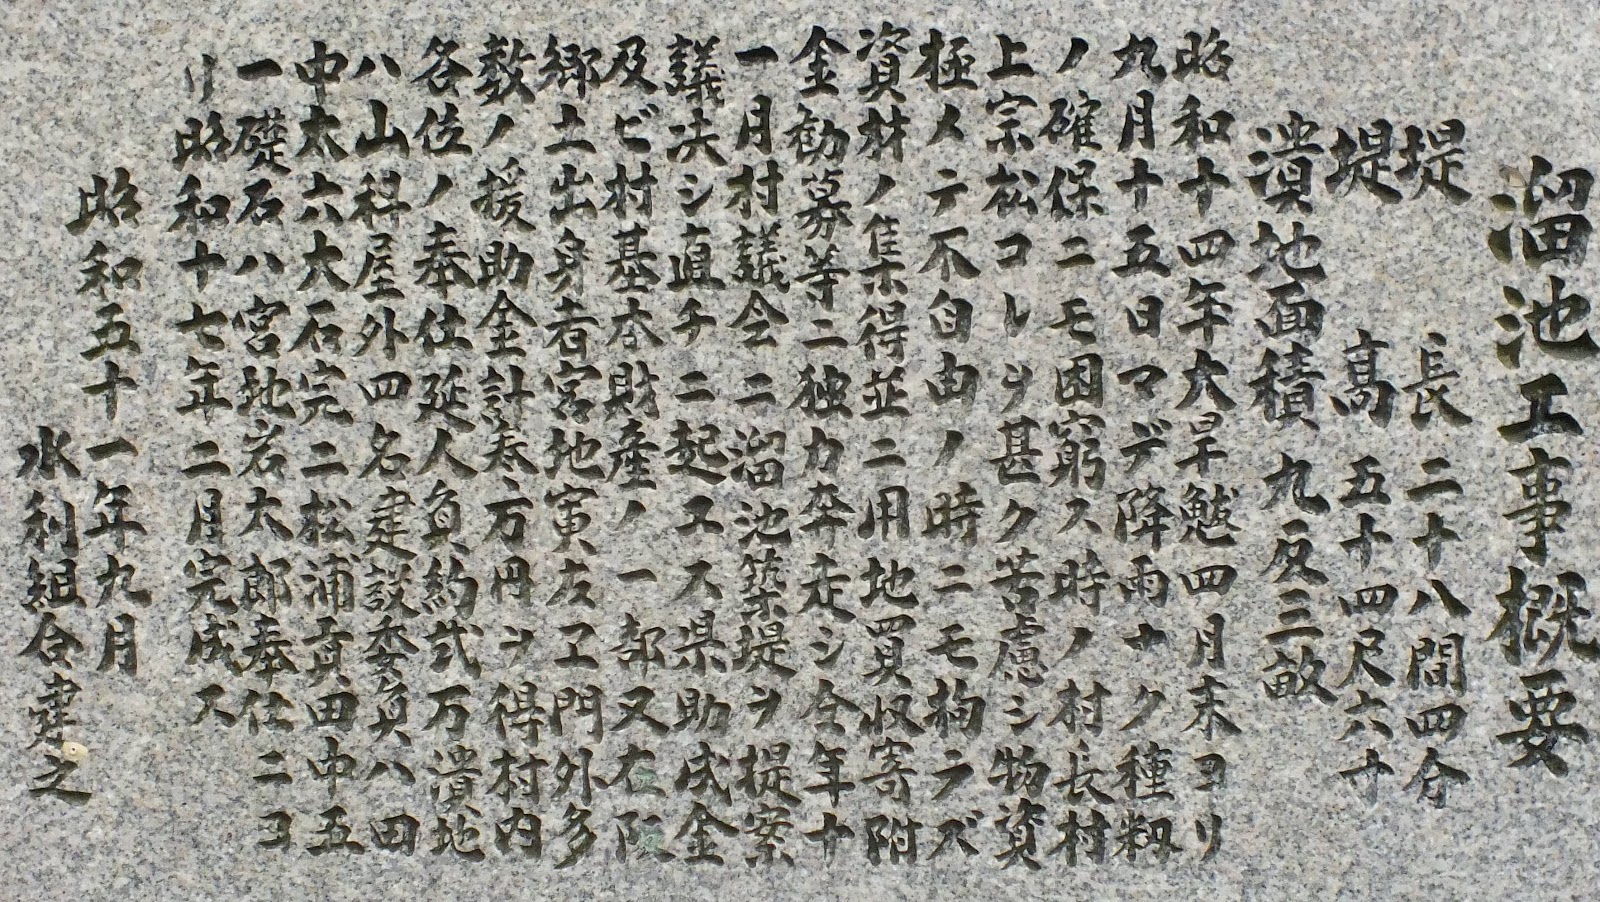 溜池工事概要
堤 長 二十八間四分
堤 高 五十四尺六寸
潰地面積 九反三畝
昭和十四年大旱魃四月末ヨリ
九月十五日マデ降雨ナク種籾
ノ確保ニモ困窮ス時ノ村長村
上宗松コレヲ甚ク苦慮シ物資
極メテ不自由ノ時ニモ拘ラズ
資材ノ集得並ニ用地買収寄附
金勧募等ニ独力奔走シ仝年十
一月村議会ニ溜池築堤ヲ提案
議決シ直チニ起工ス県助成金
及ビ村基本財産ノ一部又在阪
郷土出身者宮地寅友ヱ門外多
数ノ援助金計壱万円ヲ得村内
各位ノ奉仕延人員約弐万潰地
ハ山科屋外四名建設委員ハ田
中太六大石完二松浦貢田中五
一礎石ハ宮地岩太郎奉仕ニヨ
リ昭和十七年二月完成ス
昭和五十一年九月
水利組合建之